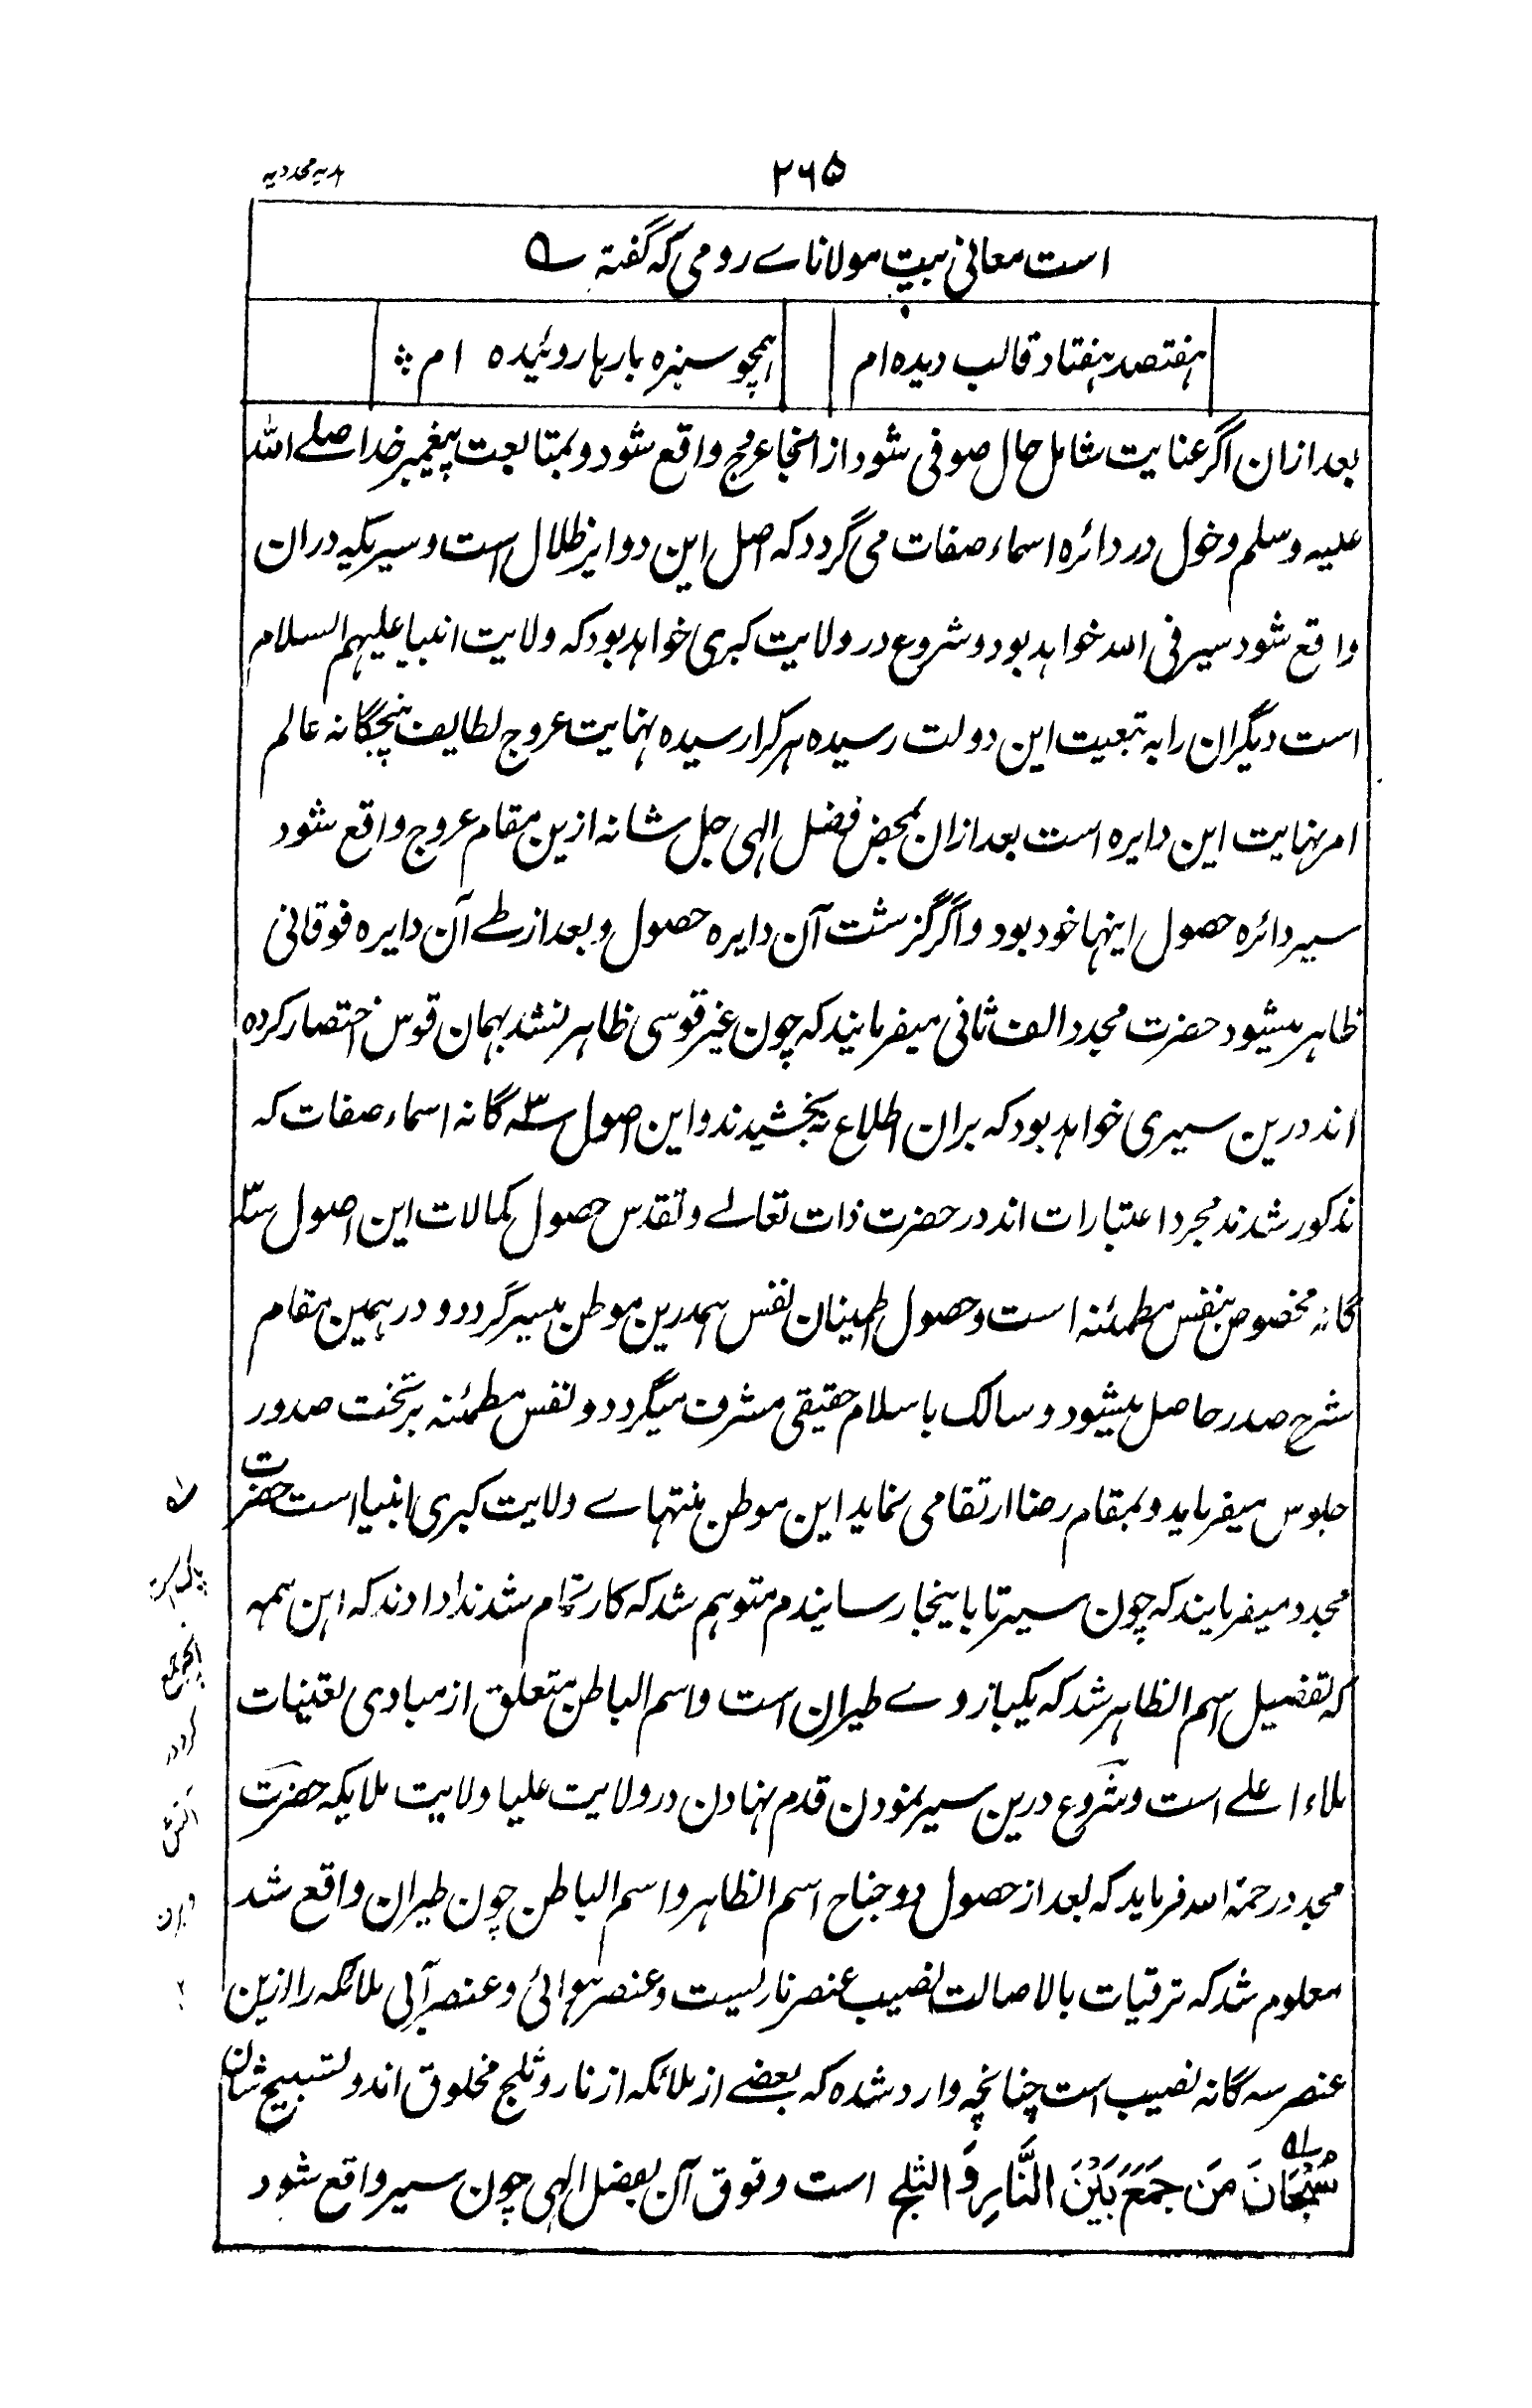 ۲۶۵
ہدیہ مجددیہ
است معانی بیت مولاناے رومی کہ گفتہ ؎
ہفتصد ہفتاد قالب دیدہ ام
ہمچو سبزہ بارہا روئیدہ ام
بعد ازان اگر عنایت شامل حال صوفی شود از انجا عروج واقع شود و بمتابعت پیغمبر خدا صلے اللہ
علیہ وسلم دخول در دائرہ اسماء صفات می گردد کہ اصل این دوایر ظلال است و سیریکہ دران
واقع شود سیر فی اللہ خواہد بود و شروع در ولایت کبری خواہد بود کہ ولایت انبیا علیہم السلام
است دیگران را بہ تبعیت این دولت رسیدہ ہر کرا رسیدہ نہایت عروج لطایف پنجگانہ عالم
امر نہایت این دایرہ است بعد ازان بمحض فضل الہی جل شانہ ازین مقام عروج واقع شود
سیر دائرہ حصول اینہا خود بود و اگر گزشت آن دایرہ حصول و بعد از طے آن دایرہ فوقانی
ظاہر میشود حضرت مجدد الف ثانی میفرمایند کہ چون غیر قوسی ظاہر نشد بہمان قوس اختصار کردہ
اند درین سیری خواہد بود کہ بران اطلاع نہ بخشیدند و این اصول سہ گانہ اسماء صفات کہ
مذکور شدند مجرد اعتبارات اند در حضرت ذات تعالے و تقدس حصول کمالات این اصول سہ
گانہ مخصوص بنفس مطمئنہ است و حصول اطمینان نفس ہمدرین موطن میسر گردد و در ہمین مقام
شرح صدر حاصل میشود و سالک باسلام حقیقی مشرف میگردد و نفس مطمئنہ بر تخت صدور
جلوس میفرماید و بمقام رضا ارتقا می نماید این موطن منتہاے ولایت کبری انبیا است حضرت
مجدد میفرمایند کہ چون سیر تا باینجا رسانیدم متوہم شد کہ کار تمام شد ندا دادند کہ این ہمہ
کہ تفضیل اسم الظاہر شد کہ یکبازوے طیران است و اسم الباطن متعلق از مبادی تعینات
ملاء اعلے است و شروع درین سیر نمودن قدم نہادن در ولایت علیا ولایت ملایکہ حضرت
مجدد رحمۃ اللہ فرماید کہ بعد از حصول دو جناح اسم الظاہر و اسم الباطن چون طیران واقع شد
معلوم شد کہ ترقیات بالاصالت نصیب عنصر ناریست و عنصر ہوائی و عنصر آبی ملائکہ را ازین
عنصر سہ گانہ نصیب است چنانچہ وارد شدہ کہ بعضے از ملائکہ از نار و ثلج مخلوق اند و تسبیح شان
سُبْحَانَ مَن جَمَعَ بَيْنَ النَّارِ وَ الثلج است و فوق آن بفضل الہی چون سیر واقع شود
پاک است
آنکہ جمع
کردہ
آتش
و برف